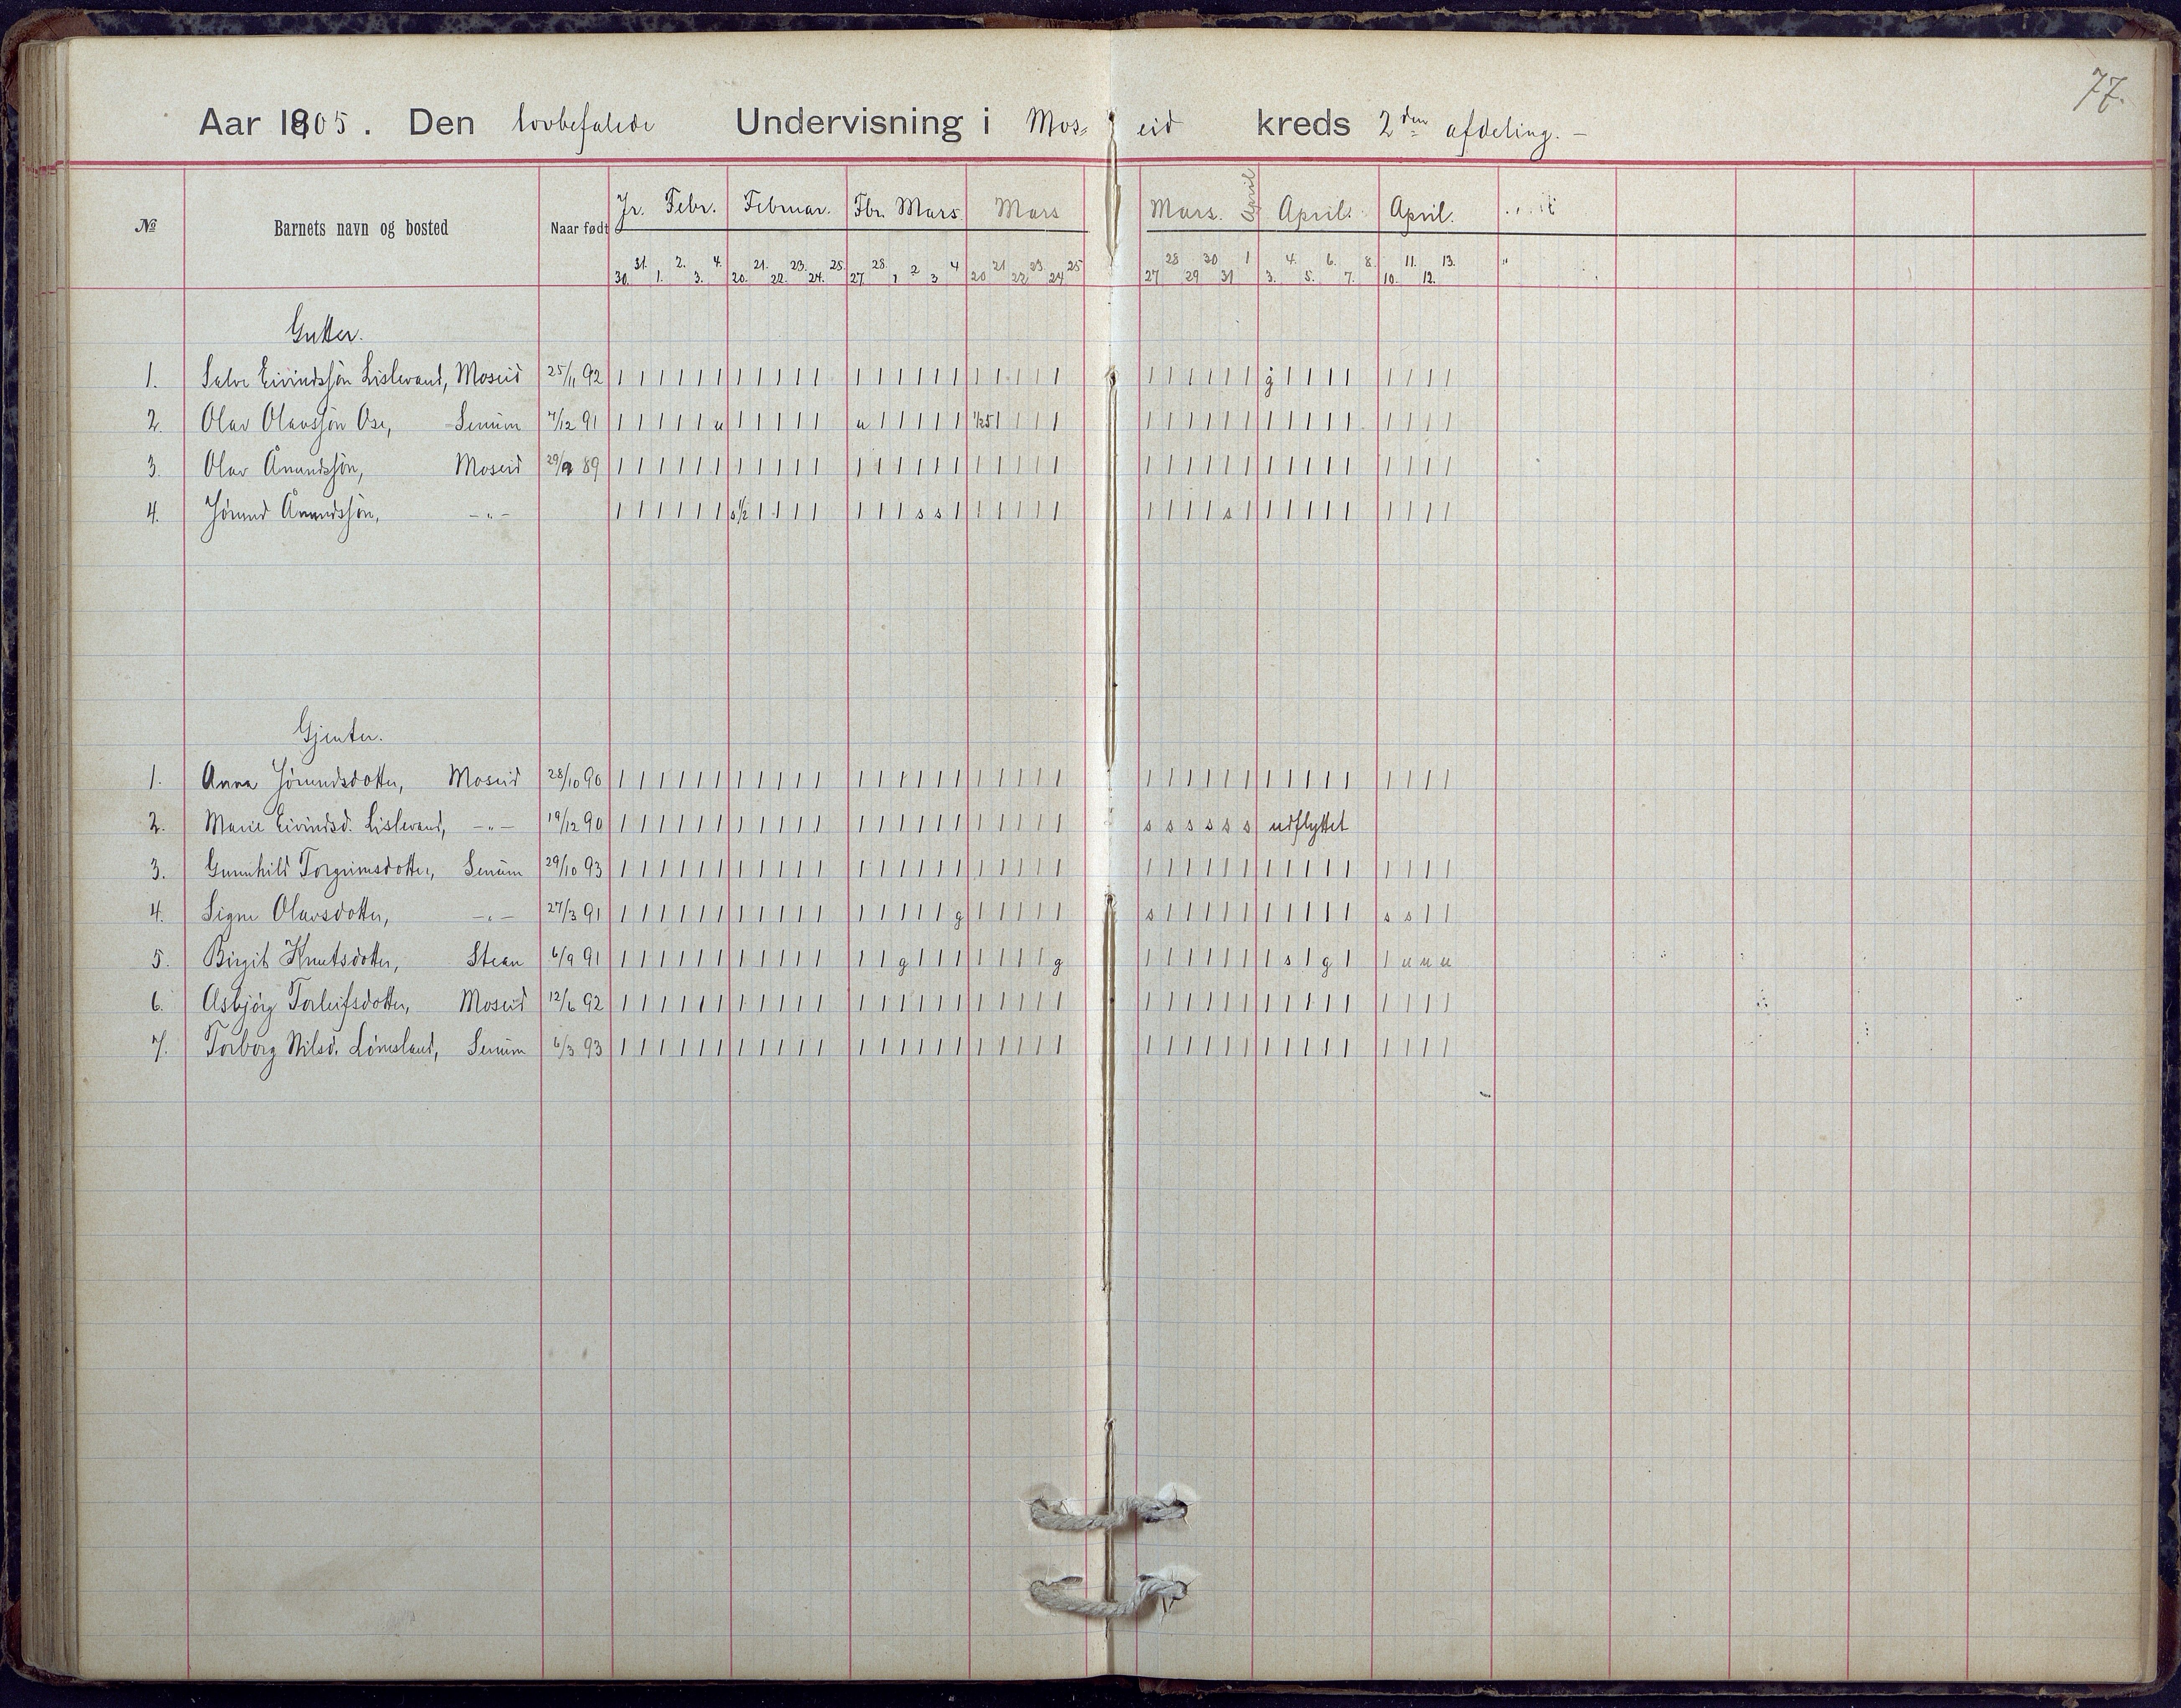 77.
Aar 1905. Den lovbefalede Undervisning i Mos= eid kreds 2den afdeling. –
№ Barnets navn og bosted Naar født Jr. Febr. Februar. Fbr. Mars Mars Mars. April April. April.
30. 31. 1. 2. 3. 4. 20. 21. 22. 23. 24. 25. 27. 28 1 2 3 4 20 21 22 23 24 25 27 28 29 30 31 1 3. 4. 5. 6. 7. 8. 10. 11. 12. 13.
Gutter.
1. Salve Eivindssjøn Lislevand, Moseid 25/11 92 | | | | | | | | | | | | | | | | | | | | | | | | | | | | g | | | | | | | |
2. Olav Olavssjøn Ose, Senum 7/12 91 | | | | | u | | | | | u | | | | | 1/25 | | | | | | | | | | | | | | | | | | |
3. Olav Ånundssjøn, Moseid 29/9 89 | | | | | | | | | | | | | | | | | | | | | | | | | | | | | | | | | | | | |
4. Jørund Ånundssjøn, -"- | | | | | | s1/2 | | | | | | | s s | | | | | | | | | | s | | | | | | | | | |
Gjenter.
1. Anna Jørundsdotter, Moseid 28/10 90 | | | | | | | | | | | | | | | | | | | | | | | | | | | | | | | | | | | | |
2. Marie Eivindsd. Lislevand, -"- 19/12 90 | | | | | | | | | | | | | | | | | | | | | | s s s s s s udflyttet
3. Gunnhild Torgrimsdotter, Senum 29/10 93 | | | | | | | | | | | | | | | | | | | | | | | | | | | | | | | | | | | | |
4. Signe Olavsdotter, -"- 27/3 91 | | | | | | | | | | | | | | | | g | | | | | s | | | | | | | | | | s s | |
5. Birgit Knutsdotter, Stean 6/9 91 | | | | | | | | | | | | | g | | | | | | | g | | | | | | | s | g | | u u u
6. Asbjörg Torleifsdotter, Moseid 12/6 92 | | | | | | | | | | | | | | | | | | | | | | | | | | | | | | | | | | | | |
7. Torborg Nilsd. Lönesland, Senum 6/3 93 | | | | | | | | | | | | | | | | | | | | | | | | | | | | | | | | | | | | |